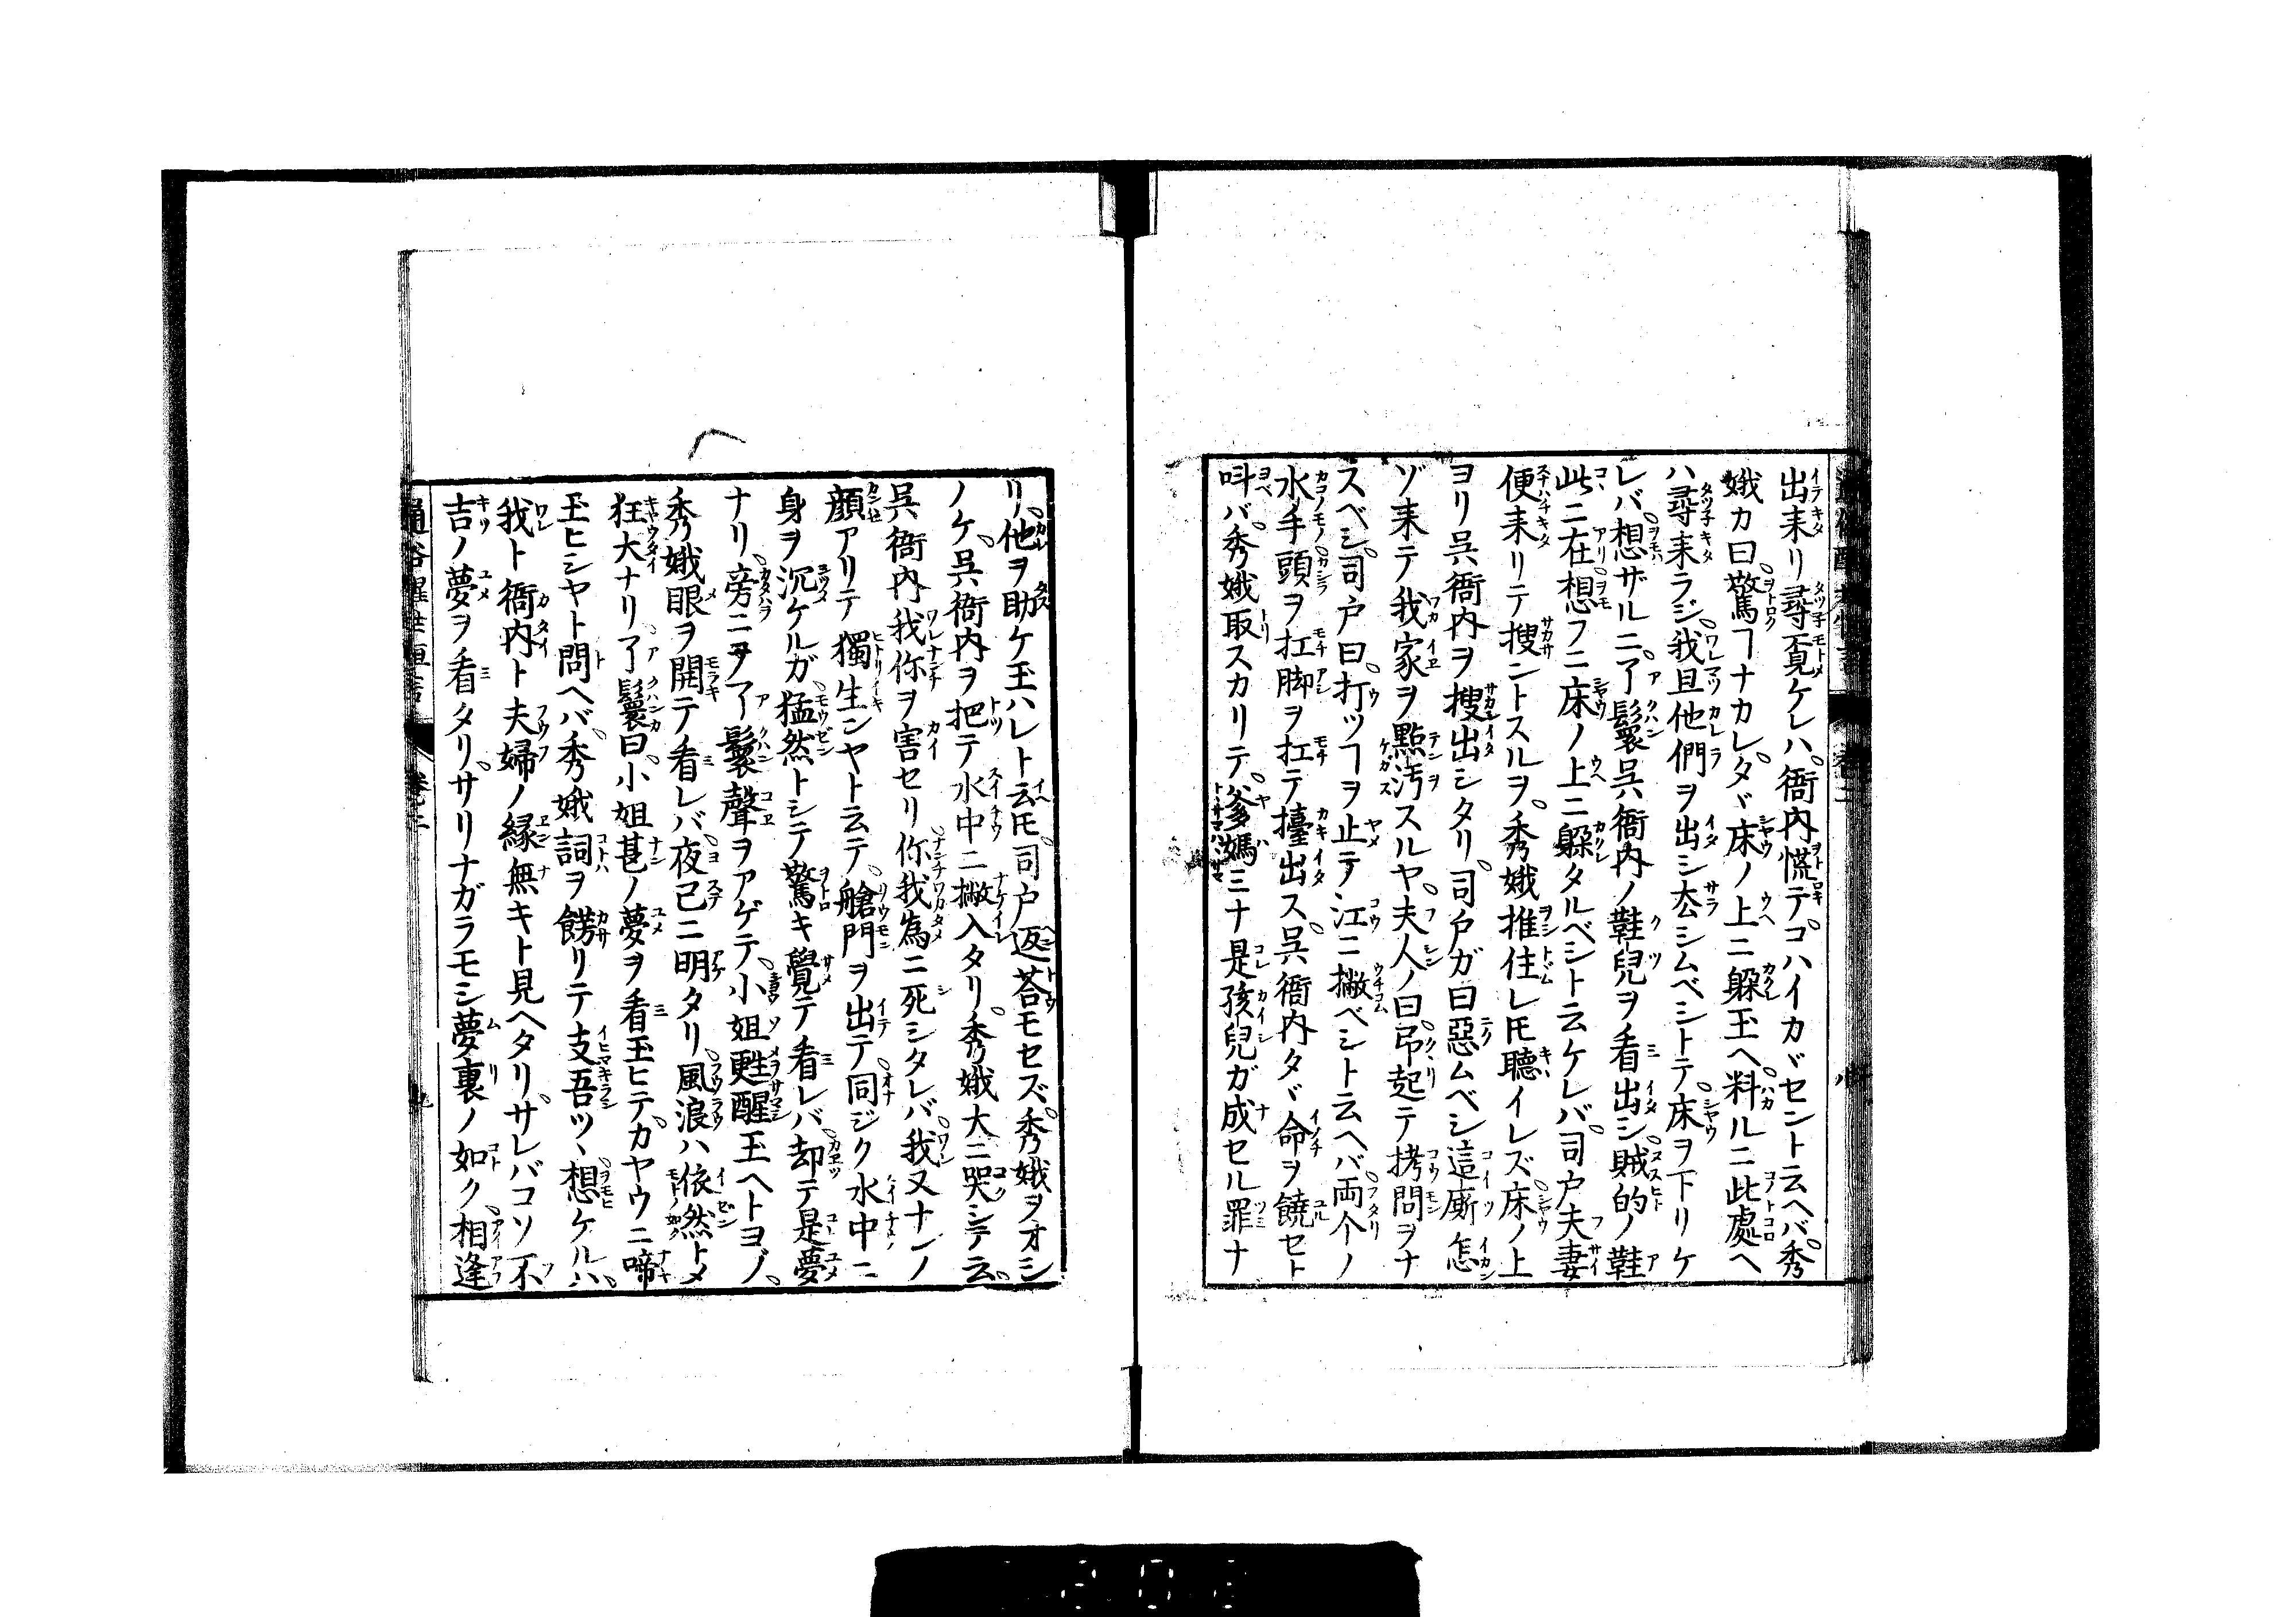 出来リ尋覓ケレハ。衙内慌テ。コハイカヾセント云ヘバ。秀
娥カ曰。驚ヿナカレ。タヾ床ノ上ニ躱玉ヘ。料ルニ此處ヘ
ハ尋来ラジ。我且他們ヲ出シ厺シムベシトテ。床ヲ下リケ
レバ。想ザルニ。了鬟呉衙内ノ鞋兒ヲ看出シ。賊的ノ鞋
此ニ在。想フニ床ノ上ニ躱タルベシト云ケレバ。司戸夫妻
便来リテ搜ントスルヲ。秀娥推住レ𪜈聽イレズ。床ノ上
ヨリ呉衙内ヲ搜出シタリ。司戸ガ曰惡ムベシ這厮怎
ゾ来テ我家ヲ點汚スルヤ。夫人ノ曰。吊起テ拷問ヲナ
スベシ。司戸曰。打ツヿヲ止テ江ニ撇ベシト云ヘバ。両个ノ
水手頭ヲ扛脚ヲ扛テ擡出ス。呉衙内タヾ命ヲ饒セト
呌バ。秀娥取スカリテ。爹媽ミナ是孩兒ガ成セル罪ナ
リ。他ヲ助ケ玉ハレト云𪜈。司戸返荅モセズ。秀娥ヲオシ
ノケ。呉衙内ヲ把テ水中ニ撇入タリ。秀娥大ニ哭シテ云。
呉衙内我你ヲ害セリ。你我為ニ死シタレバ。我又ナンノ
顔アリテ獨生ンヤト云テ。艙門ヲ出テ。同ジク水中ニ
身ヲ沉ケルガ。猛然トシテ驚キ覺テ看レバ。却テ是夢
ナリ。旁ニヲヲ了鬟聲ヲアゲテ。小姐甦醒玉ヘトヨブ。
秀娥眼ヲ開テ看レバ。夜已ニ明タリ。風浪ハ依然トメ
狂大ナリ。了鬟曰。小姐甚ノ夢ヲ看玉ヒテ。カヤウニ啼
玉ヒシヤト問ヘバ。秀娥詞ヲ餝リテ支吾ツヽ。想ケルハ。
我ト衙内ト夫婦ノ縁無キト見ヘタリ。サレバコソ不
吉ノ夢ヲ看タリ。サリナガラモシ夢裏ノ如ク。相逢
通俗醒世恒言 巻之二 九